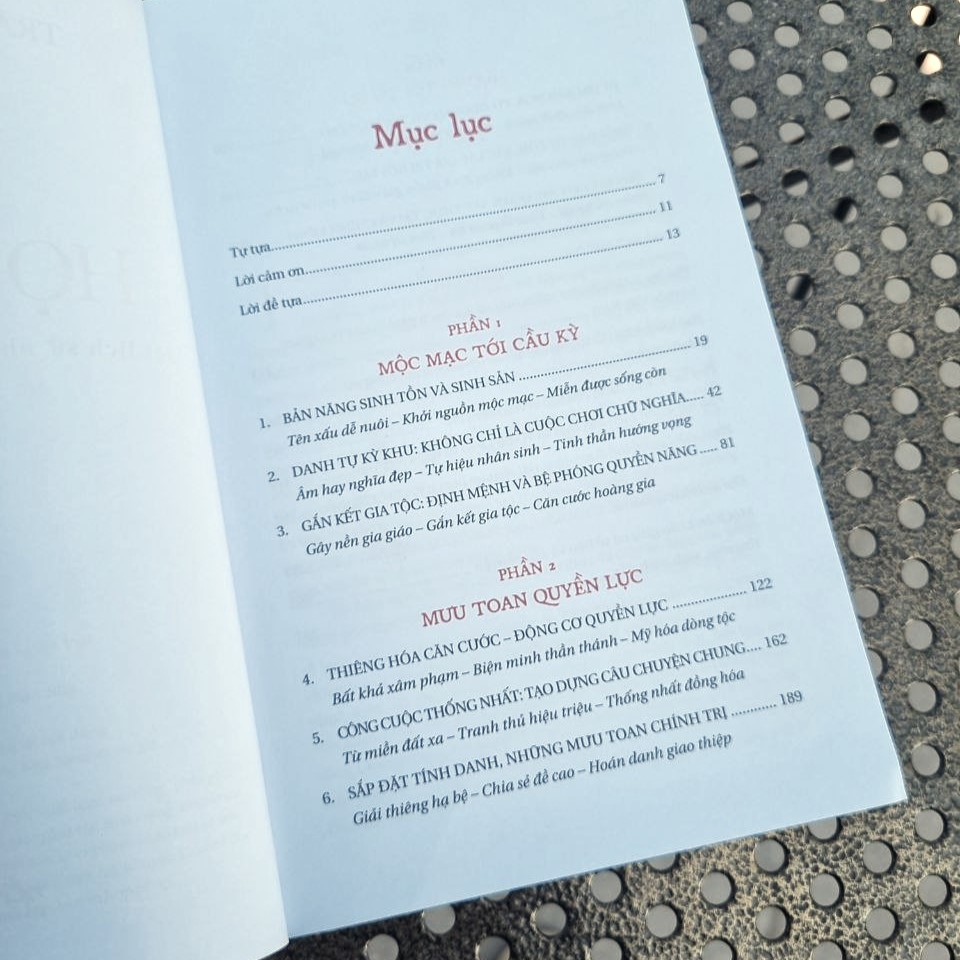 Mục lục
Tự tựa.......... 7
Lời cảm ơn.......... 11
Lời đề tựa.......... 13
PHẦN 1
MỘC MẠC TỚI CẦU KỲ
1. BẢN NĂNG SINH TỒN VÀ SINH SẢN .......... 19
Tên xấu dễ nuôi – Khởi nguồn mộc mạc – Miễn được sống còn
2. DANH TỰ KỲ KHU: KHÔNG CHỈ LÀ CUỘC CHƠI CHỮ NGHĨA..... 42
Âm hay nghĩa đẹp – Tự hiệu nhân sinh – Tinh thần hướng vọng
3. GẮN KẾT GIA TỘC: ĐỊNH MỆNH VÀ BỆ PHÓNG QUYỀN NĂNG ..... 81
Gây nền gia giáo – Gắn kết gia tộc – Căn cước hoàng gia
PHẦN 2
MƯU TOAN QUYỀN LỰC
4. THIÊNG HÓA CĂN CƯỚC – ĐỘNG CƠ QUYỀN LỰC .......... 122
Bất khả xâm phạm – Biện minh thần thánh – Mỹ hóa dòng tộc
5. CÔNG CUỘC THỐNG NHẤT: TẠO DỰNG CÂU CHUYỆN CHUNG.... 162
Từ miền đất xa – Tranh thủ hiệu triệu – Thống nhất đồng hóa
6. SẮP ĐẶT TÍNH DANH, NHỮNG MƯU TOAN CHÍNH TRỊ ............ 189
Giải thiêng hạ bệ – Chia sẻ đề cao – Hoán danh giao thiệp